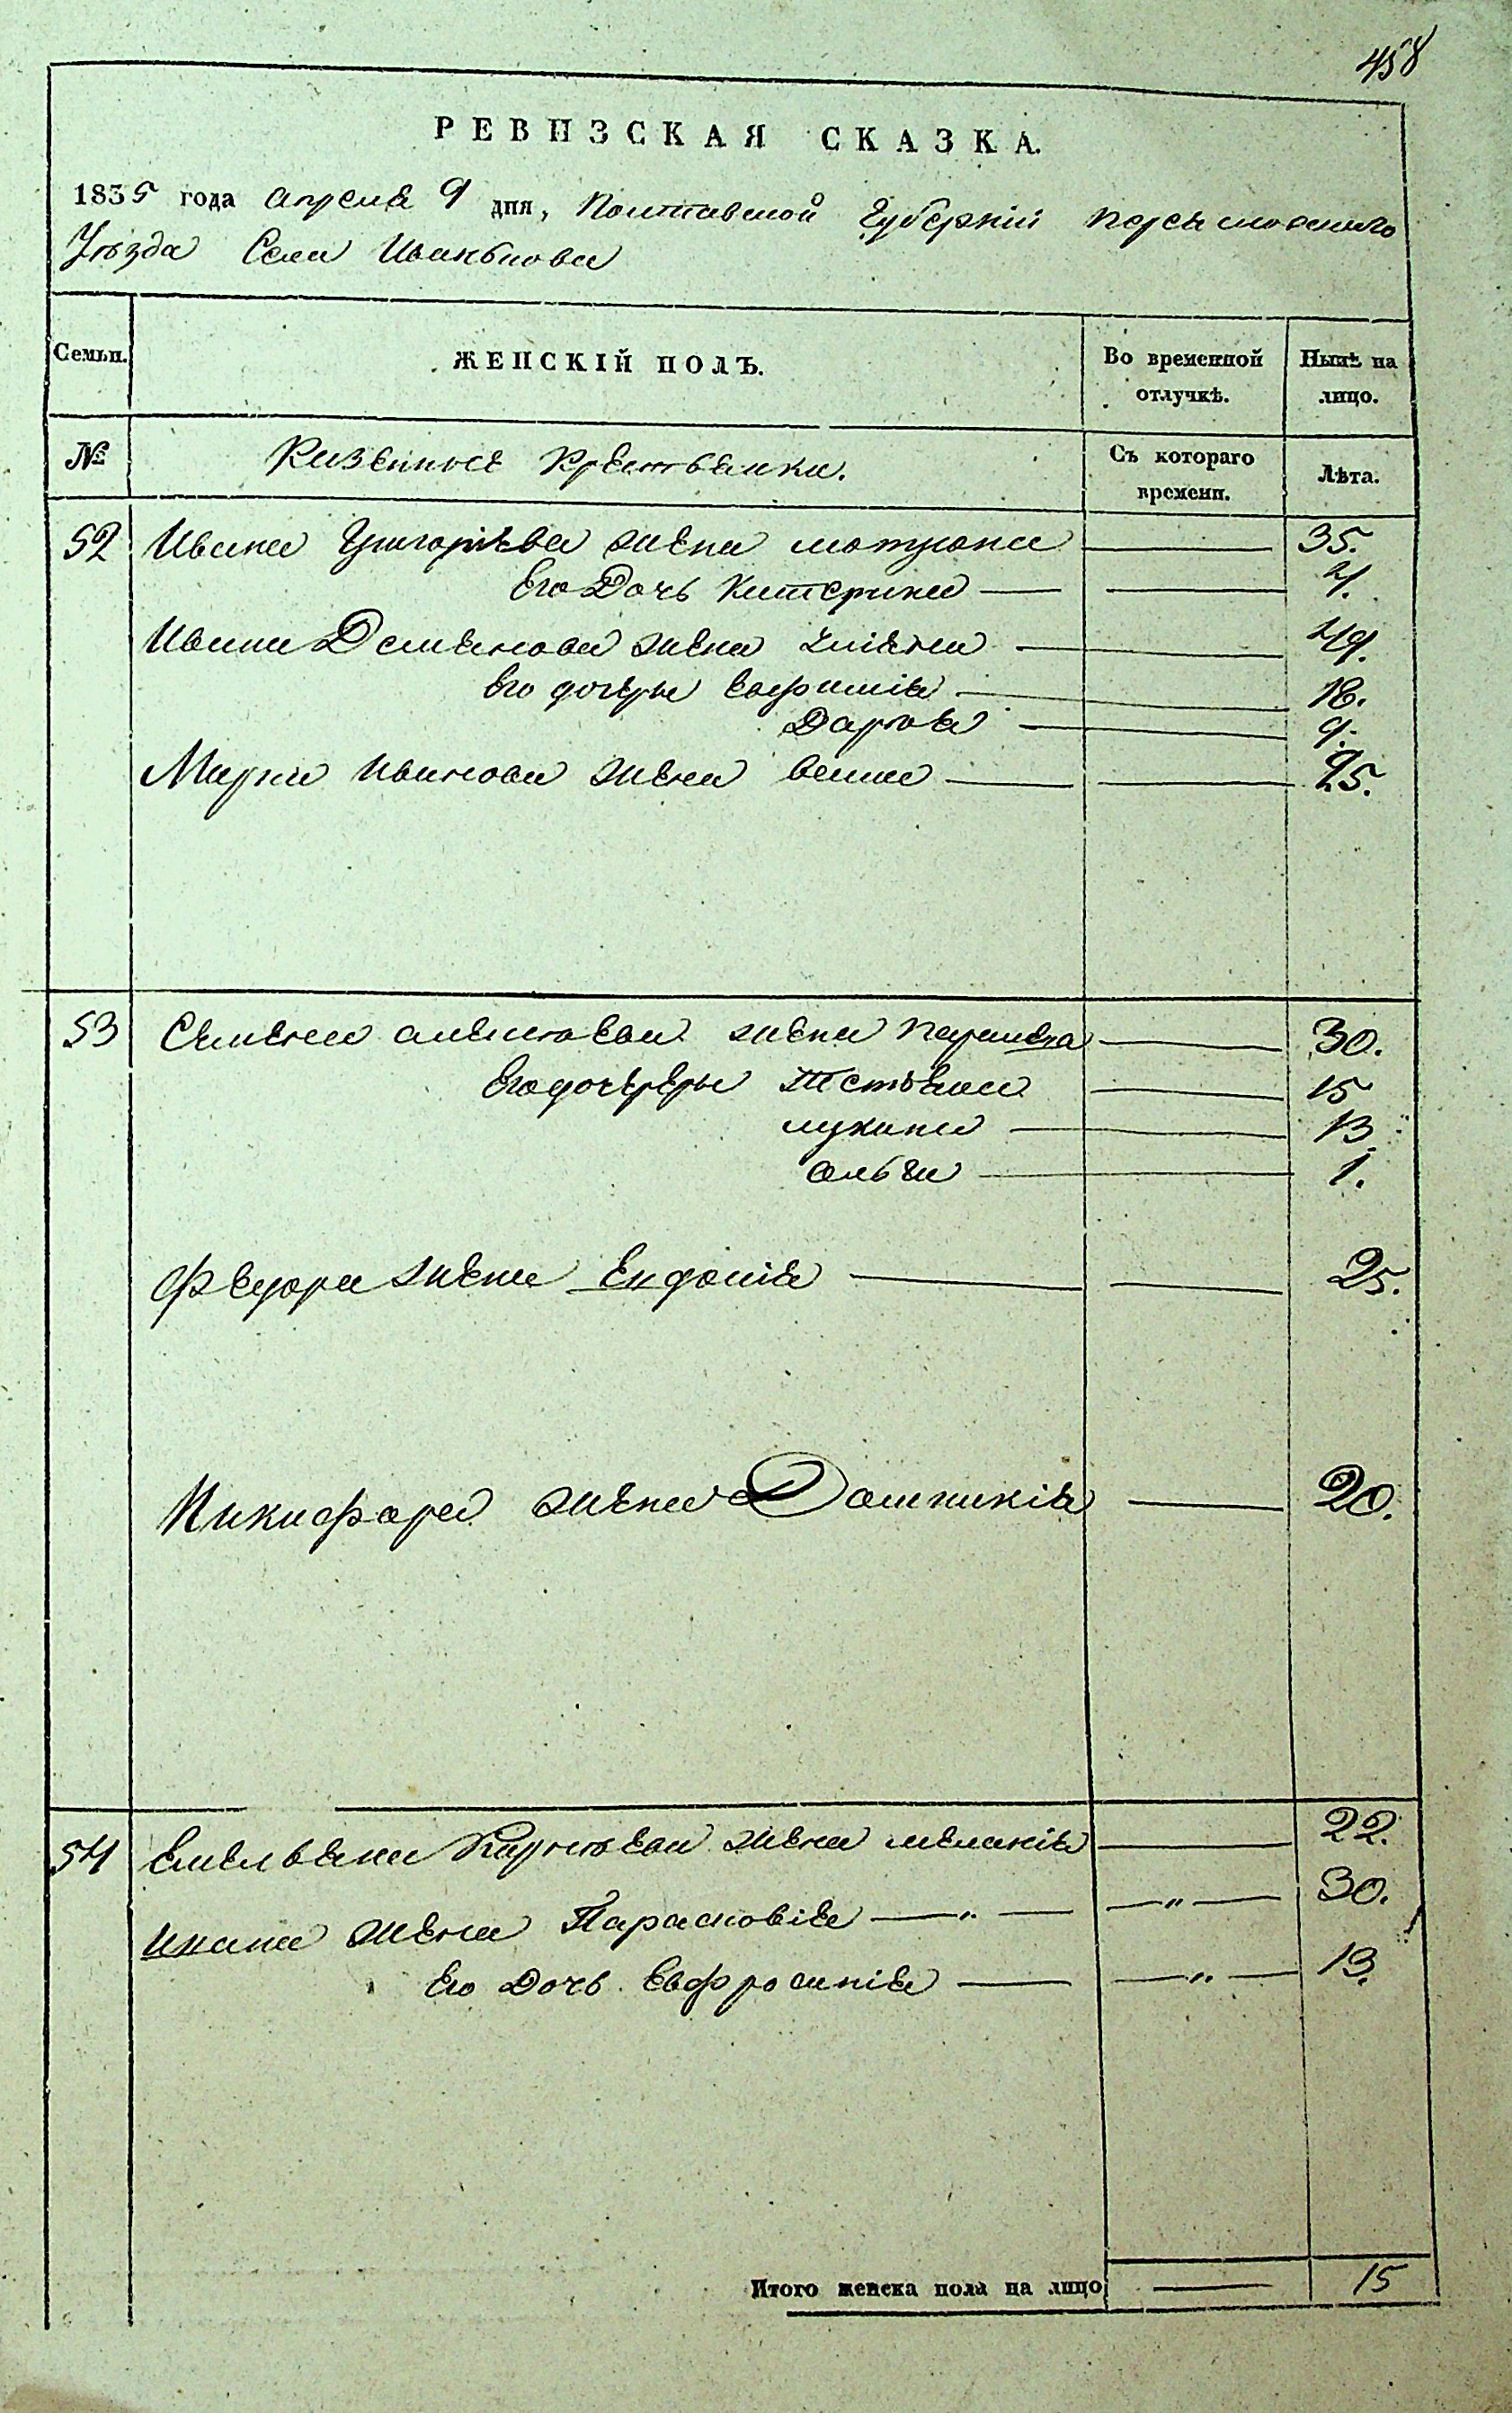 458
РЕВИЗСКАЯ СКАЗКА.
1835 года апреля 9 дня, Полтавской Губерніи Переясловского
Уезда Села Иванькова
Семьи. ЖЕНСКІЙ ПОЛЪ. Во временной отлучкѣ. Нынѣ на лицо.
№ Казенные Крестьянки. Съ котораго времени. Лѣта.
52 Ивана Григорьева жена мотрона 35.
Его Дочь Катерина 4.
Ивана Демьянова жена улияна 49.
Его дочеры Евфимія 18.
Дарья 9.
Марка Иванова жена 25.
53 Семена жена Параскa 30.
Его дочереры Тетяна 15
лукина 13
ольга 1.
Федора жена Евдокія 25.
Никифора жена Домникія 20.
54 Емельяна Карпова жена меланія 22.
Ивана жена Парасковія — „ — — „ — 30.
Его Дочь Евфросинія — — „ — 13.
Итого женска пола на лицо 15